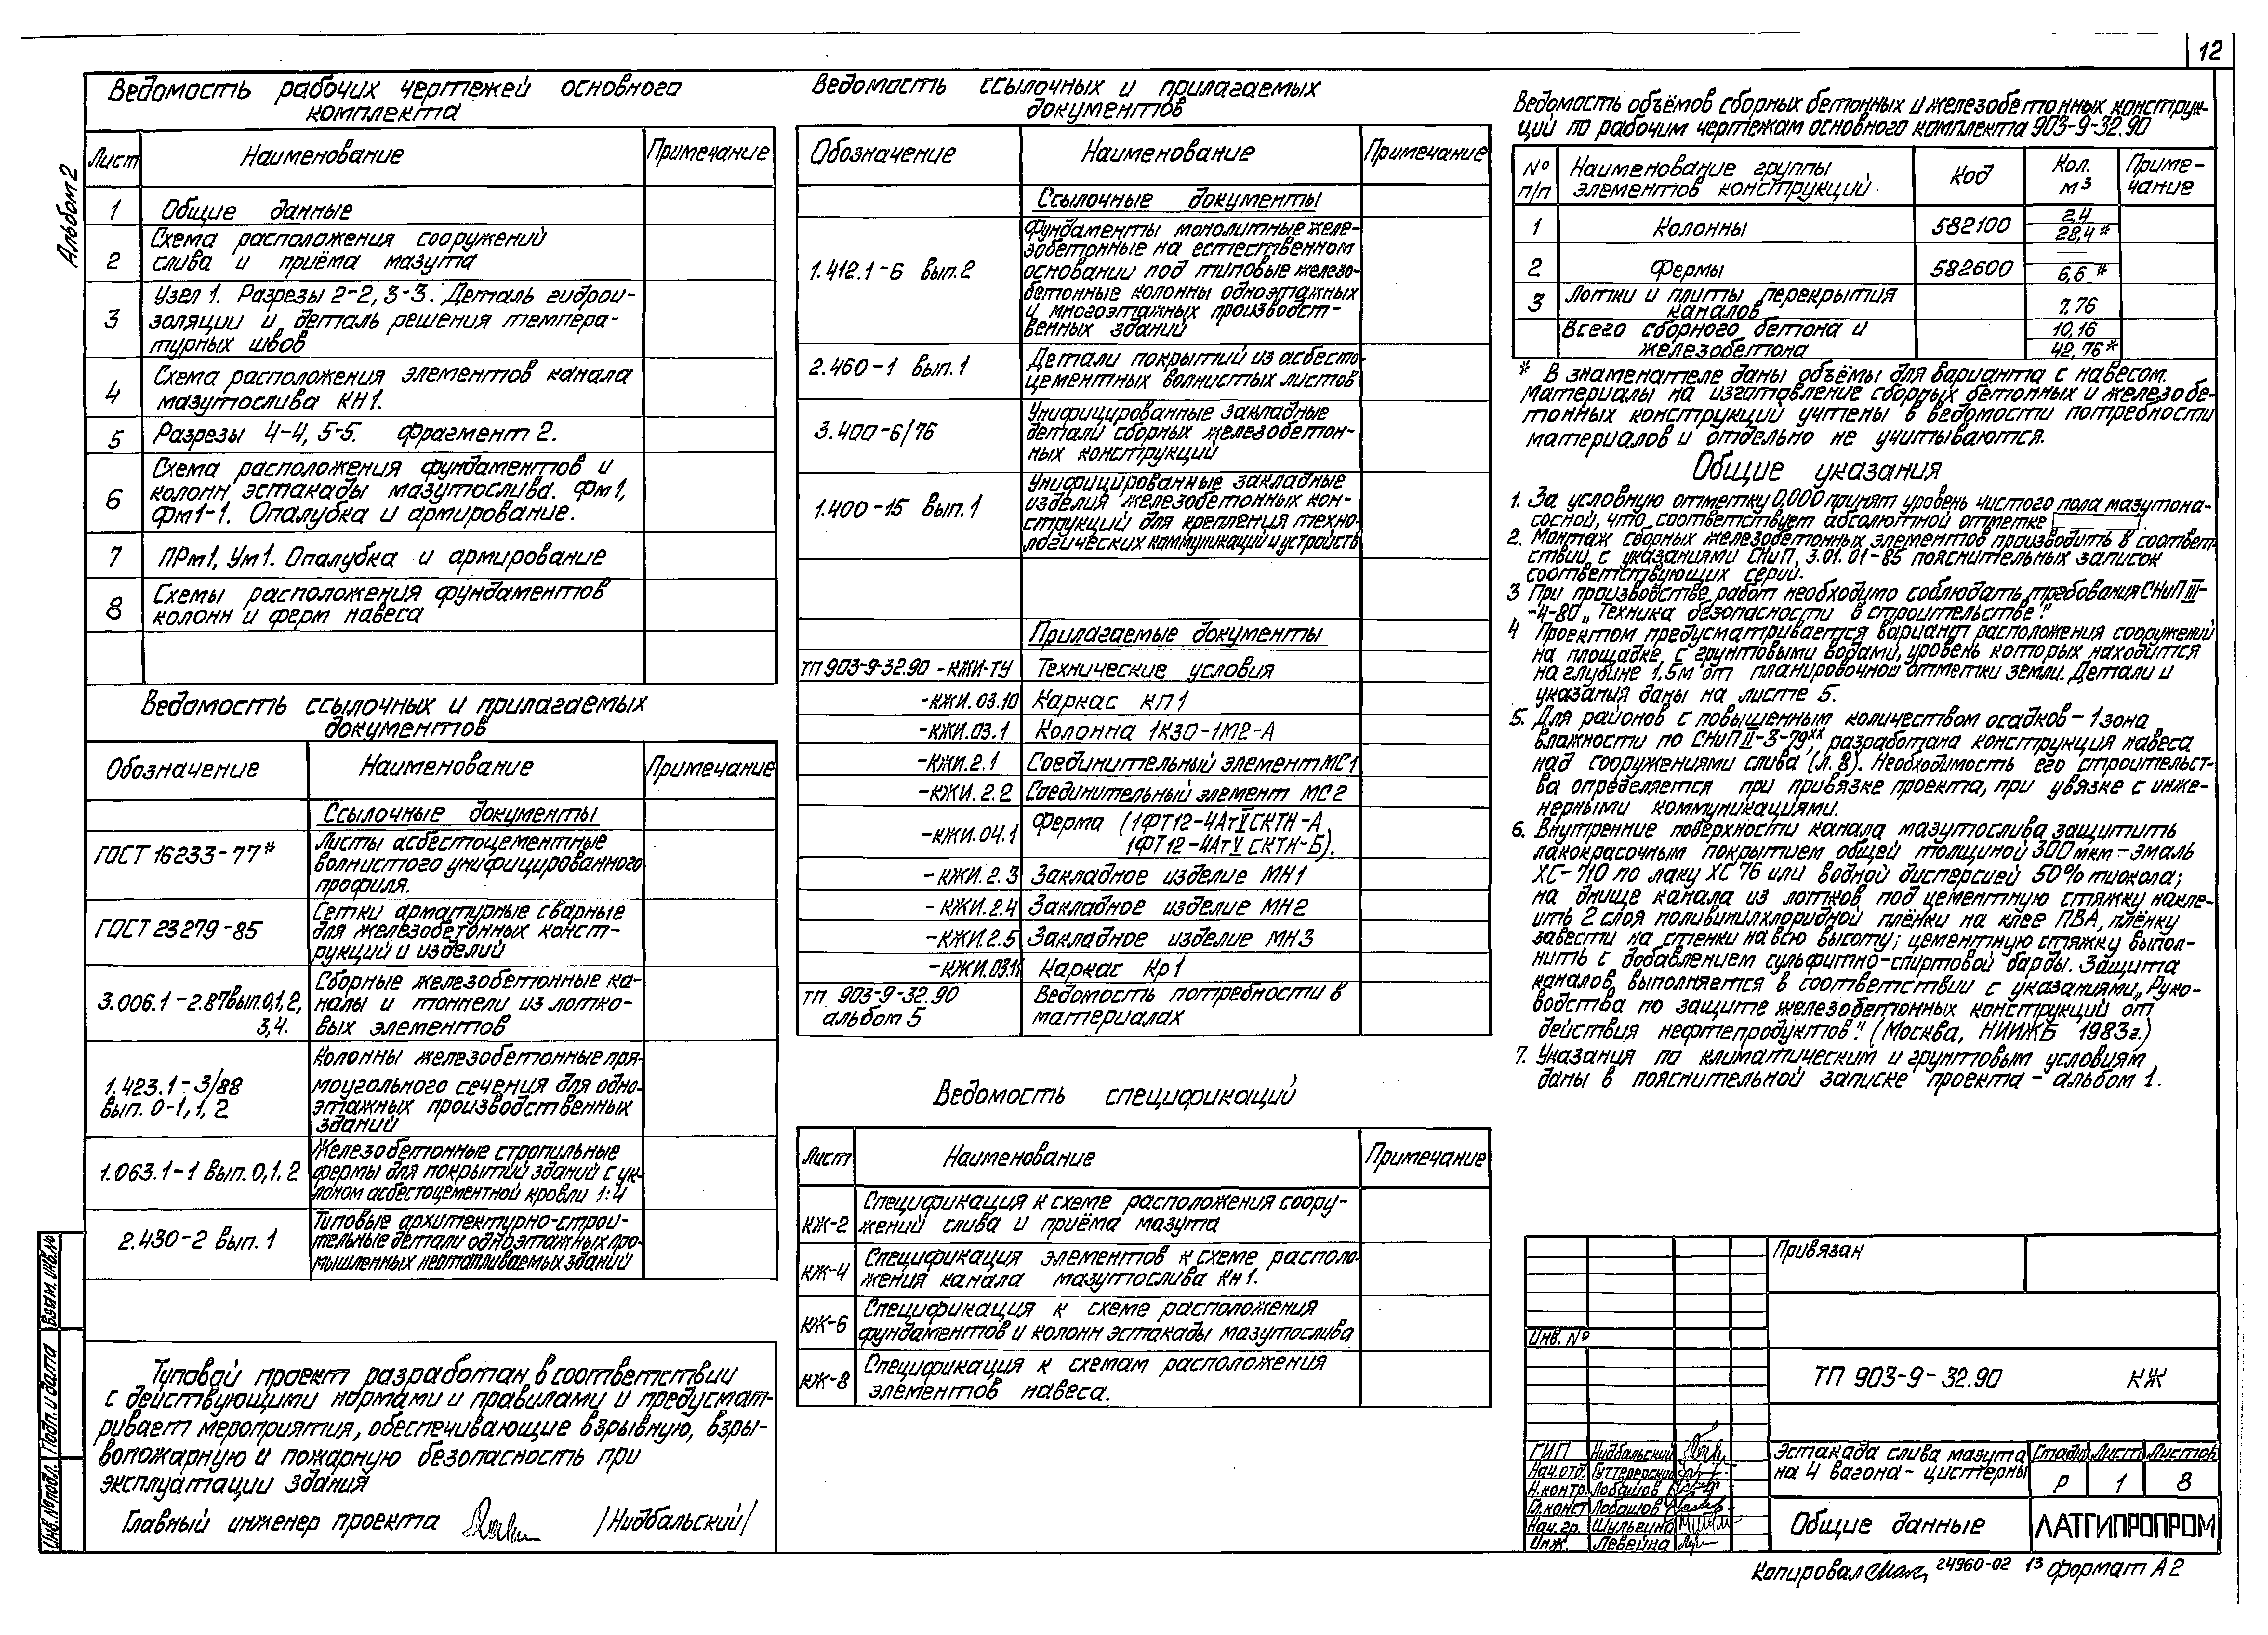 12
Альбом 2
Ведомость рабочих чертежей основного
комплекта
Лист Наименование Примечание
1 Общие данные
2 Схема расположения сооружений
слива и приёма мазута
3 Узел 1. Разрезы 2-2, 3-3. Деталь гидрои-
золяции и деталь решения темпера-
турных швов
4 Схема расположения элементов канала
мазутослива КН1.
5 Разрезы 4-4, 5-5. Фрагмент 2.
6 Схема расположения фундаментов и
колонн эстакады мазутослива. Фм1,
Фм1-1. Опалубка и армирование.
7 ПРм1, Ум1. Опалубка и армирование
8 Схемы расположения фундаментов
колонн и ферм навеса
Ведомость ссылочных и прилагаемых
документов
Обозначение Наименование Примечание
Ссылочные документы
ГОСТ 16233-77* Листы асбестоцементные
волнистого унифицированного
профиля.
ГОСТ 23279-85 Сетки арматурные сварные
для железобетонных конст-
рукций и изделий
3.006.1-2.87 вып.0,1,2,
3,4.
Сборные железобетонные ка-
налы и тоннели из лотко-
вых элементов
1.423.1-3/88
вып. 0-1, 1, 2
Колонны железобетонные пря-
моугольного сечения для одно-
этажных производственных
зданий
1.063.1-1 вып. 0,1,2 Железобетонные стропильные
фермы для покрытий зданий с ук-
лоном асбестоцементной кровли 1:4
2.430-2 вып. 1 Типовые архитектурно-строи-
тельные детали одноэтажных про-
мышленных неотапливаемых зданий
Типовой проект разработан в соответствии
с действующими нормами и правилами и предусмат-
ривает мероприятия, обеспечивающие взрывную, взры-
вопожарную и пожарную безопасность при
эксплуатации здания
Главный инженер проекта /Нидбальский/
Взам. инв.№
Подп. и дата
Инв. № подл.
Ведомость ссылочных и прилагаемых
документов
Обозначение Наименование Примечание
Ссылочные документы
1.412.1-6 вып. 2 Фундаменты монолитные желе-
зобетонные на естественном
основании под типовые железо-
бетонные колонны одноэтажных
и многоэтажных производст-
венных зданий
2.460-1 вып. 1 Детали покрытий из асбесто-
цементных волнистых листов
3.400-6/76 Унифицированные закладные
детали сборных железобетон-
ных конструкций
1.400-15 вып. 1 Унифицированные закладные
изделия железобетонных кон-
струкций для крепления техно-
логических коммуникаций и устройств
Прилагаемые документы
ТП 903-9-32.90 -КЖИ-ТУ Технические условия
-КЖИ.03.10 Каркас КП1
-КЖИ.03.1 Колонна 1К30-1М2-А
-КЖИ.2.1 Соединительный элемент МС1
-КЖИ.2.2 Соединительный элемент МС2
-КЖИ.04.1 Ферма (1ФТ12-4АтV СКТН-А,
1ФТ12-4АтV СКТН-Б).
-КЖИ.2.3 Закладное изделие МН1
-КЖИ.2.4 Закладное изделие МН2
-КЖИ.2.5 Закладное изделие МН3
-КЖИ.03.11 Каркас Кр1
ТП 903-9-32.90
альбом 5
Ведомость потребности в
материалах
Ведомость спецификаций
Лист Наименование Примечание
КЖ-2 Спецификация к схеме расположения соору-
жений слива и приёма мазута
КЖ-4 Спецификация элементов к схеме располо-
жения канала мазутослива Кн1.
КЖ-6 Спецификация к схеме расположения
фундаментов и колонн эстакады мазутослива
КЖ-8 Спецификация к схемам расположения
элементов навеса.
Ведомость объёмов сборных бетонных и железобетонных конструк-
ций по рабочим чертежам основного комплекта 903-9-32.90
№ п/п Наименование группы элементов конструкций Код Кол. м3 Приме-чание
1 Колонны 582100 2,4
28,4*
2 Фермы 582600 —
6,6*
3 Лотки и плиты перекрытия
каналов 7,76
Всего сборного бетона и 10,16
железобетона 42,76*
* В знаменателе даны объёмы для варианта с навесом.
Материалы на изготовление сборных бетонных и железобе-
тонных конструкций учтены в ведомости потребности
материалов и отдельно не учитываются.
Общие указания
1. За условную отметку 0,000 принят уровень чистого пола мазутона-
сосной, что соответствует абсолютной отметке
2. Монтаж сборных железобетонных элементов производить в соответ-
ствии с указаниями СНиП 3.01.01-85 пояснительных записок
соответствующих серий.
3 При производстве работ необходимо соблюдать требования СНиП III-
-4-80 „Техника безопасности в строительстве".
4 Проектом предусматривается вариант расположения сооружений
на площадке с грунтовыми водами, уровень которых находится
на глубине 1,5м от планировочной отметки земли. Детали и
указания даны на листе 5.
5. Для районов с повышенным количеством осадков - 1 зона
влажности по СНиП II-3-79xx, разработана конструкция навеса
над сооружениями слива (л. 8). Необходимость его строительст-
ва определяется при привязке проекта, при увязке с инже-
нерными коммуникациями.
6. Внутренние поверхности канала мазутослива защитить
лакокрасочным покрытием общей толщиной 300 мкм - эмаль
ХС-710 по лаку ХС 76 или водной дисперсией 50% тиокола;
на днище канала из лотков под цементную стяжку накле-
ить 2 слоя поливинилхлоридной плёнки на клее ПВА, плёнку
завести на стенки на всю высоту; цементную стяжку выпол-
нить с добавлением сульфитно-спиртовой барды. Защита
каналов выполняется в соответствии с указаниями „Руко-
водства по защите железобетонных конструкций от
действия нефтепродуктов". (Москва, НИИЖБ 1983г.)
7. Указания по климатическим и грунтовым условиям
даны в пояснительной записке проекта - альбом 1.
Привязан
Инв. №
ТП 903-9-32.90 КЖ
ГИП Нидбальский
Нач.отд. Гуттерерский
Н.контр. Лобашов
Гл.конст Лобашов
Нач. гр. Шульгина
Инж. Левейка
Эстакада слива мазута
на 4 вагона-цистерны
Стадия Лист Листов
Р 1 8
Общие данные
ЛАТГИПРОПРОМ
Копировал 24960-02 13 формат А2